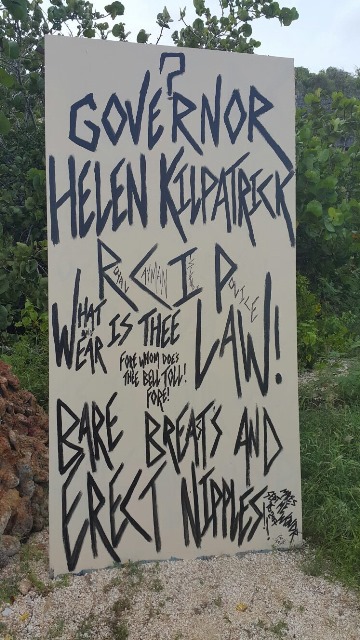 ?
GOVERNOR
HELEN KILPATRICK
RCIP
ROYAL CAYMAN POLICE
WHAT IS THEE LAW!
EAR
FORE WHOM DOES
THEE BELL TOLL!
FORE!
BARE BREATS AND
ERECT NIPPLES!!